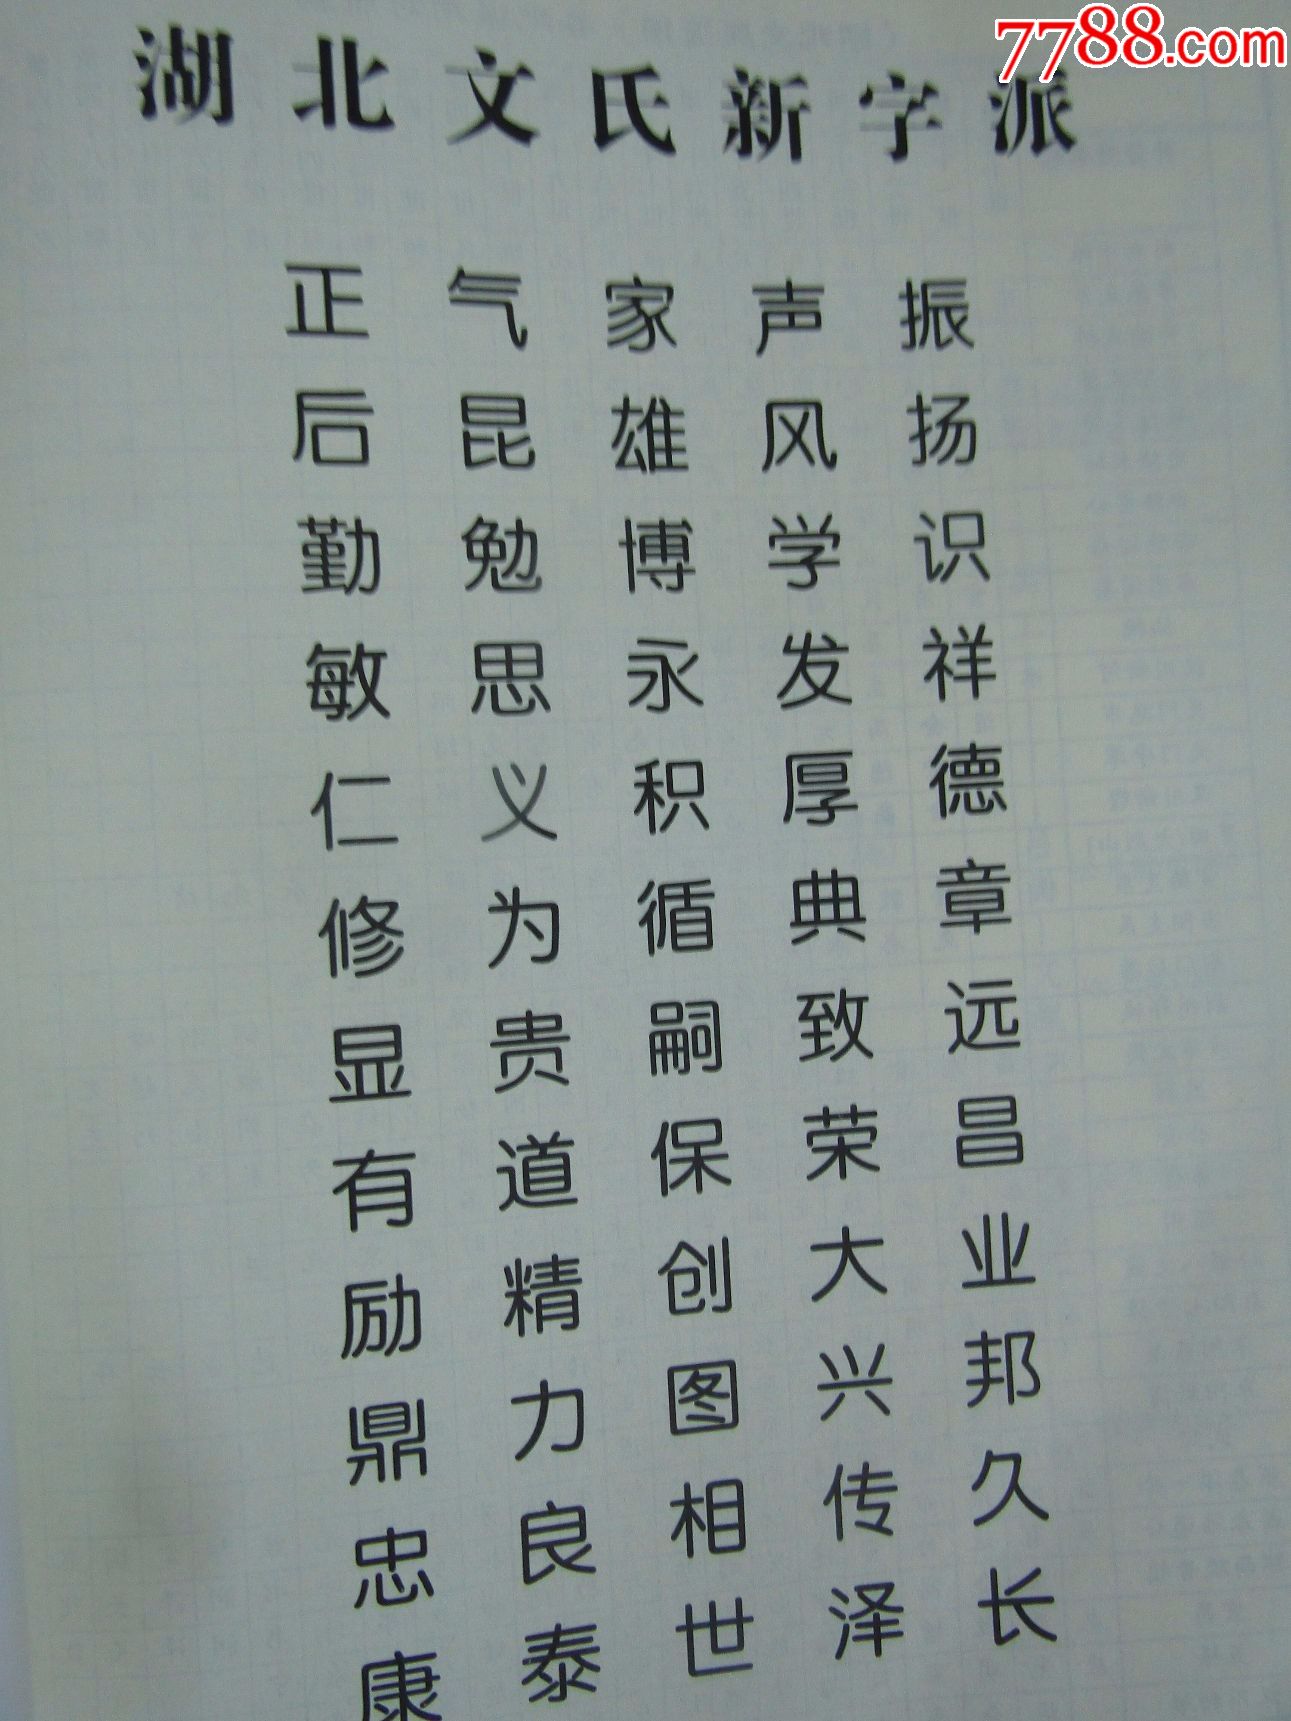 7788.com
湖北文氏新字派
正气家声振
后昆雄风扬
勤勉博学识
敏思永发祥
仁义积厚德
修为循典章
显贵嗣致远
有道保荣昌
励精创大业
鼎力图兴邦
忠良相传久
康泰世泽长